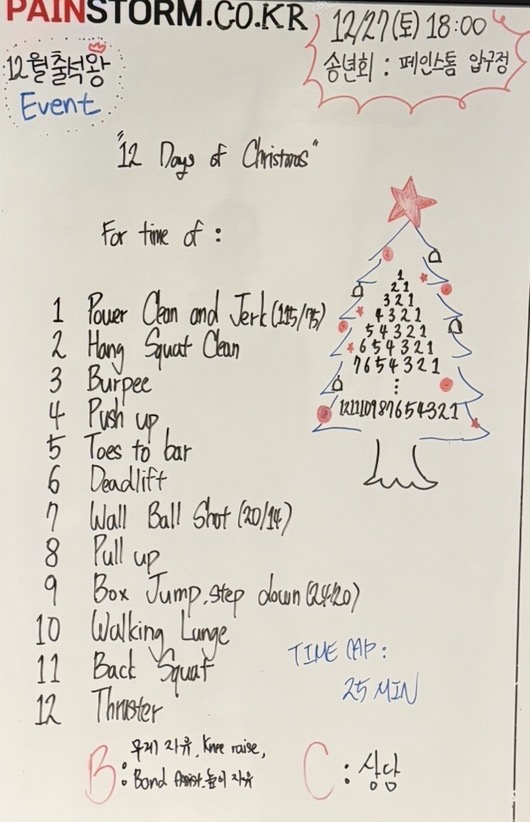 PAINSTORM.CO.KR
12/27(토) 18:00
송년회 : 페인스톰 압구정
12월 출석왕
Event
"12 Days of Christmas"
For time of :
1 Power Clean and Jerk (115/75)
2 Hang Squat Clean
3 Burpee
4 Push up
5 Toes to bar
6 Deadlift
7 Wall Ball Shot (20/14)
8 Pull up
9 Box Jump, step down (24/20)
10 Walking Lunge
11 Back Squat
12 Thruster
1
21
321
4321
54321
654321
7654321
⋮
121110987654321
TIME CAP :
25 MIN
B : 무게 자유, Knee raise,
Band Assist, 높이 자유
C : 상담